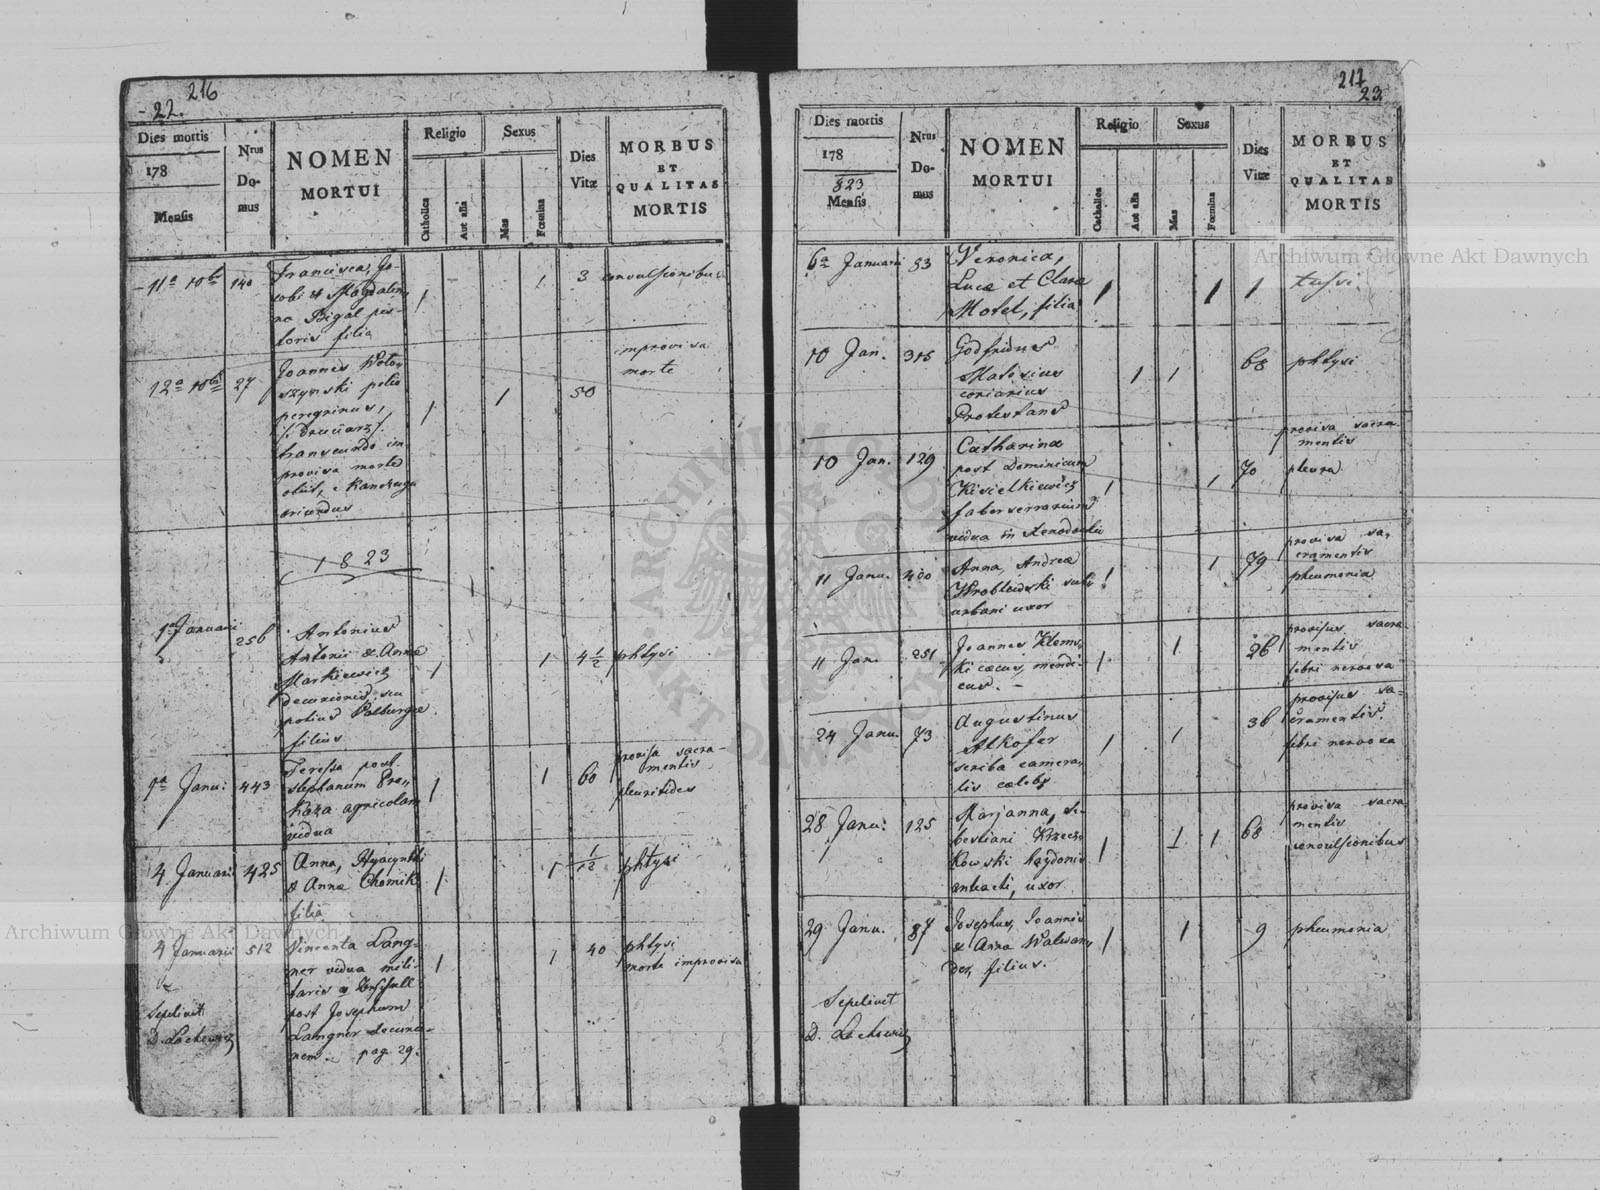 216
- 22.
Dies mortis
178
Mensis
Nrus
Do-
mus
NOMEN
MORTUI
Religio
Catholica
Aut alia
Sexus
Mas
Fœmina
Dies
Vitæ
MORBUS
ET
QUALITAS
MORTIS
11a 10bris 140
Francisca, Ja-
cobi et Magdale-
na Bigal pis-
toris filia
1 1 3 convulsionibus
12a 10bris 27
Joannes Woło-
szynski
peregrinus,
transeundo im-
provisa morte
obiit, e Kanczuga
oriundus
1 1 50
improvisa
morte
1823
1a Januarii 256
Antonius
Antonii & Anna
Markiewicz
decurionis, seu
potius Walburgæ
filius
1 1 4 1/2 phtysi
1a Janu: 443
Teressa post
Stephanum
agricolam
vidua
1 1 60
provisa sacra-
mentis
pleuritides
4 Januarii 425
Anna, Hyacynthi
& Anna Chomik
filia
1 1 1/12 phtysi
4 Januarii 512
Vincenta Lang-
ner vidua mili-
taris
post Josephum
Langner decurio-
nem. pag. 29.
1 1 40
phtysi
morte improvisa
Sepelivit
D. Lachowicz
217
23
Dies mortis
178
823
Mensis
Nrus
Do-
mus
NOMEN
MORTUI
Religio
Catholica
Aut alia
Sexus
Mas
Fœmina
Dies
Vitæ
MORBUS
ET
QUALITAS
MORTIS
6a Januarii 53
Veronica,
Lucæ et Claræ
Motel, filia
1 1 1 tussi
10 Jan. 315
Godfridus
Matesius
coriarius
Protestans
1 1 68 phtysi
10 Jan. 129
Catharina
post Dominicum
Kisielkiewicz
faber serrarium
vidua in Xenodochio
1 1 70
provisa sacra-
mentis
pleura
11 Janu. 400
Anna, Andreæ
Wroblewski sub-
urbani uxor
1 1 79
provisa sa-
cramentis
pheumonia
11 Jan. 251
Joannes Klems-
ki cœcus, mendi-
cus. -
1 1 26
provisus sacra-
mentis
febri nervosa
24 Janu. 73
Augustinus
Alkofer
scriba camera-
lis cælebs
1 1 36
provisus sa-
cramentis.
febri nervosa
28 Janu: 125
Marjanna, Se-
bestiani Krzecz-
kowski haydonis
antiacti, uxor
1 1 1 68
provisa sacra
mentis
convulsionibus
29 Janu. 87
Josephus, Joannis
& Anna Walsan-
der, filius.
1 1 9 pheumonia
Sepelivit
D. Lachowicz
Archiwum Główne Akt Dawnych
Archiwum Główne Akt Dawnych
ARCHIWUM GŁÓWNE AKT DAWNYCH